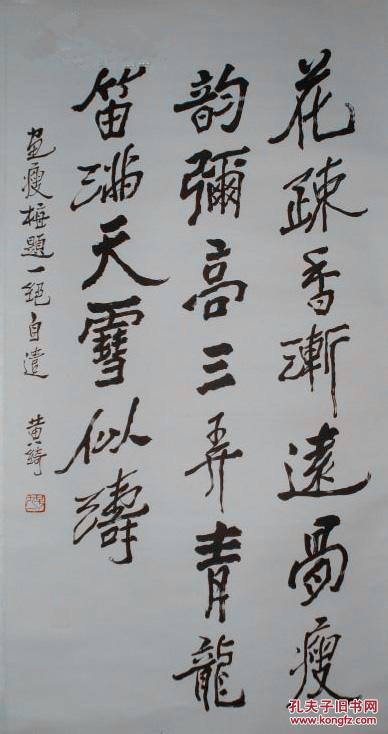 花疎香漸遠骨瘦
韵彌高三弄青龍
笛滿天雪似濤
画瘦梅題一絕自遣 黄綺
孔夫子旧书网
www.kongfz.com